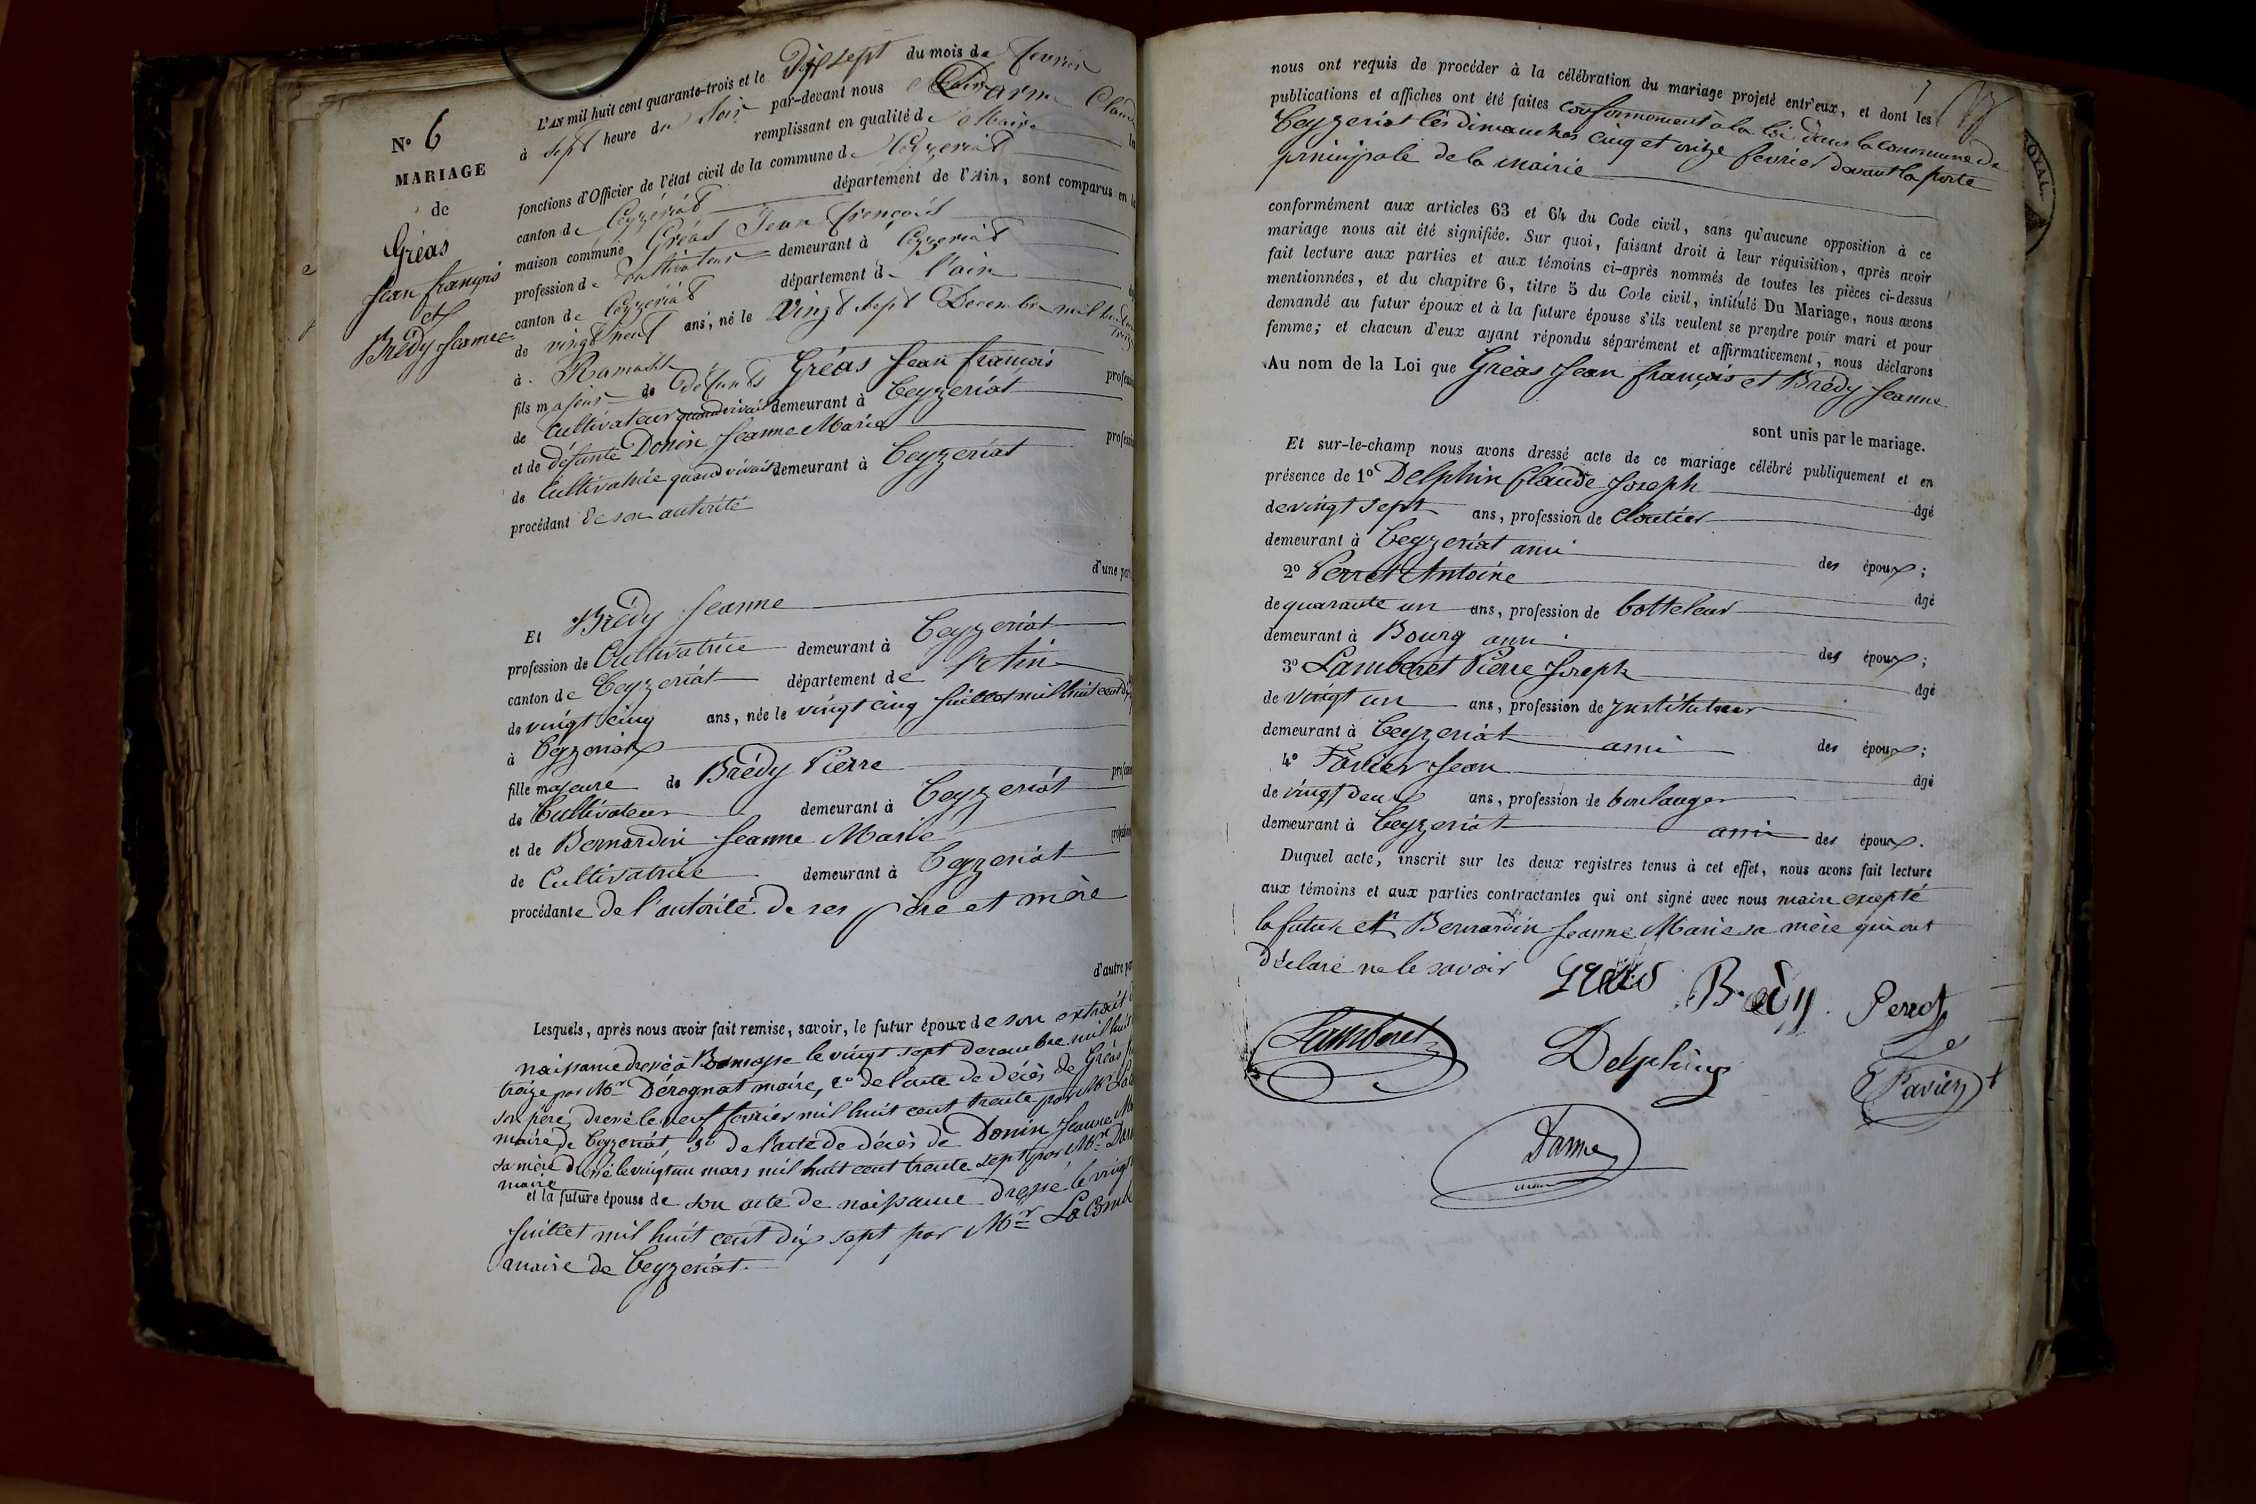 N° 6
MARIAGE
de
Gréas
Jean françois
et
Brédy Jeanne
L'AN mil huit cent quarante-trois et le Dix sept du mois de fevrier
à sept heure du soir par-devant nous Darme Claude
remplissant en qualité de Maire
fonctions d'Officier de l'état civil de la commune de Ceyzeriat
canton de Ceyzériat département de l'Ain, sont comparus en la
maison commune Gréas Jean françois
profession de cultivateur demeurant à Ceyzeriat
canton de Ceyzeriat département de l'ain
de vingt neuf ans, né le vingt sept Decembre mil huit cent treize
à Ramasse
fils majeur de défunts Gréas Jean francois
de Cultivateur quand vivait demeurant à Ceyzeriat
et de défunte Donin Jeanne Marie
de Cultivatrice quand vivait demeurant à Ceyzeriat
procédant de son autorité
d'une part
Et Brédy Jeanne
profession de Cultivatrice demeurant à Ceyzeriat
canton de Ceyzeriat département de l'Ain
de vingt cinq ans, née le vingt cinq Juillet mil huit cent dix
à Ceyzeriat
fille majeure de Brédy Pierre
de Cultivateur demeurant à Ceyzeriat
et de Bernardin Jeanne Marie
de Cultivatrice demeurant à Ceyzeriat
procédante de l'autorité de ses père et mère
d'autre part
Lesquels, après nous avoir fait remise, savoir, le futur époux de son extrait
naissance dressé à Ramasse le vingt sept decembre mil huit
treize par Mr Dérognat maire, 2° de l'acte de décès de Gréas
son père, dressé le neuf fevrier mil huit cent trente par Mr
maire de Ceyzeriat 3° de l'acte de décès de Donin Jeanne
sa mère dressé le vingt un mars mil huit cent trente sept par Mr
maire
et la future épouse de son acte de naissance dressé le vingt
Juillet mil huit cent dix sept par Mr LaCombe
maire de Ceyzeriat.
7
nous ont requis de procéder à la célébration du mariage projeté entr'eux, et dont les
publications et affiches ont été faites conformement à la loi dans la commune de
Ceyzeriat les dimanches cinq et onze fevrier devant la porte
principale de la Mairie
conformément aux articles 63 et 64 du Code civil, sans qu'aucune opposition à ce
mariage nous ait été signifiée. Sur quoi, faisant droit à leur réquisition, après avoir
fait lecture aux parties et aux témoins ci-après nommés de toutes les pièces ci-dessus
mentionnées, et du chapitre 6, titre 5 du Code civil, intitulé Du Mariage, nous avons
demandé au futur époux et à la future épouse s'ils veulent se prendre pour mari et pour
femme; et chacun d'eux ayant répondu séparément et affirmativement, nous déclarons
Au nom de la Loi que Gréas Jean françois et Brédy Jeanne
sont unis par le mariage.
Et sur-le-champ nous avons dressé acte de ce mariage célébré publiquement et en
présence de 1° Delphin Claude Joseph âgé
de vingt sept ans, profession de Cloutier
demeurant à Ceyzeriat ami des époux;
2° Perret Antoine âgé
de quarante un ans, profession de botteleur
demeurant à Bourg ami des époux;
3° Lamberet Pierre Joseph âgé
de vingt un ans, profession de Instituteur
demeurant à Ceyzeriat ami des époux;
4° Favier Jean âgé
de vingt deux ans, profession de boulanger
demeurant à Ceyzeriat ami des époux.
Duquel acte, inscrit sur les deux registres tenus à cet effet, nous avons fait lecture
aux témoins et aux parties contractantes qui ont signé avec nous maire excepté
la future et Bernardin Jeanne Marie sa mère qui ont
déclaré ne le savoir
Gréas Brédy Perret
Lamberet Delphin Favier
Darme